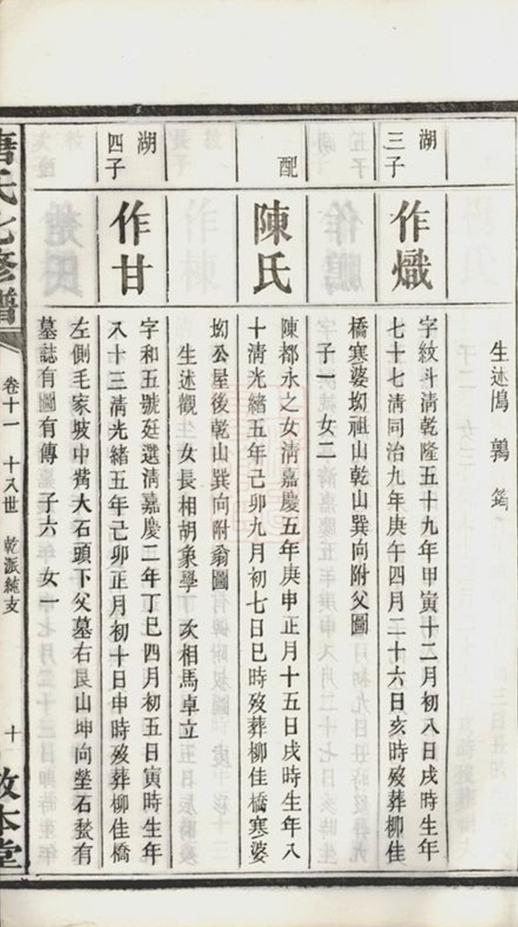 生述鴋 鶉 筠
湖三子
作熾
字紋斗淸乾隆五十九年甲寅十二月初八日戌時生年
七十七淸同治九年庚午四月二十六日亥時歿葬柳佳
橋寒婆坳祖山乾山巽向附父圖
子一 女二
配
陳氏
陳都永之女淸嘉慶五年庚申正月十五日戌時生年八
十淸光緖五年己卯九月初七日巳時歿葬柳佳橋寒婆
坳公屋後乾山巽向附翁圖
生述觀 女長相胡象學 次相馬卓立
湖四子
作甘
字和五號廷選淸嘉慶二年丁巳四月初五日寅時生年
八十三淸光緖五年己卯正月初十日申時歿葬柳佳橋
左側毛家坡中觜大石頭下父墓右艮山坤向塋石鰲有
墓誌有圖有傳 子六 女一
唐氏七修譜
卷十一 十八世 乾派純支
十一
敦本堂